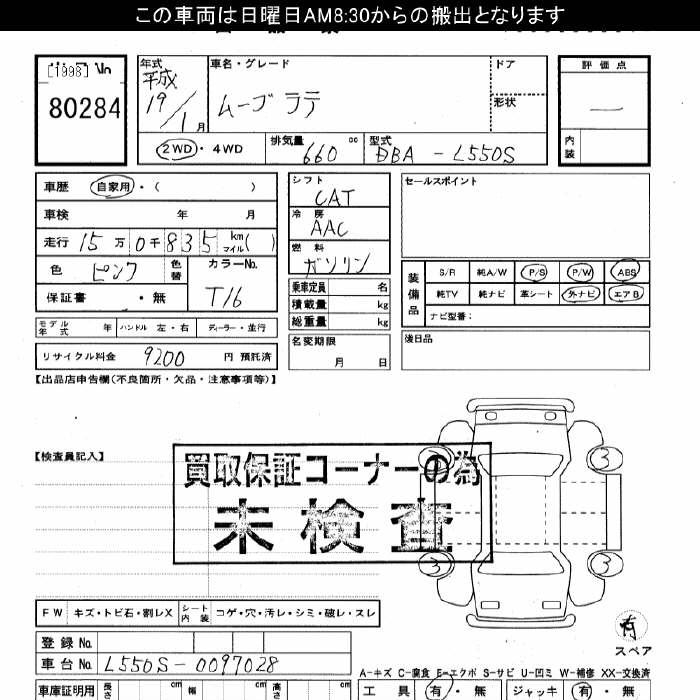 この車両は日曜日AM8:30からの搬出となります
[1998]
80284
年式
平成
19/1月
車名・グレード
ムーヴ ラテ
ドア
形状
評価点
—
内装
2WD・4WD
排気量
660 cc
型式
DBA - L550S
車歴 自家用・( )
車検 年 月
走行 15万0千835 km マイル( )
色 ピンク 色替
カラーNo.
T16
保証書 ・無
モデル年式 年 ハンドル 左・右 ディーラー・並行
リサイクル料金 9200 円 預託済
シフト
CAT
冷房
AAC
燃料
ガソリン
乗車定員 名
積載量 kg
総重量 kg
名変期限
月 日
セールスポイント
装備品
S/R 純A/W P/S P/W ABS
純TV 純ナビ 革シート 外ナビ エアB
ナビ型番:
後日品
【出品店申告欄(不良箇所・欠品・注意事項等)】
【検査員記入】
買取保証コーナーの為
未検査
3 3
3 3
有
スペア
FW キズ・トビ石・割レX シート内装 コゲ・穴・汚レ・シミ・破レ・スレ
登録No.
車台No. L550S-0097028
A-キズ C-腐食 E-エクボ S-サビ U-凹ミ W-補修 XX-交換済
車庫証明用 長さ cm 幅 cm 高さ cm
工具 有・無 ジャッキ 有・無